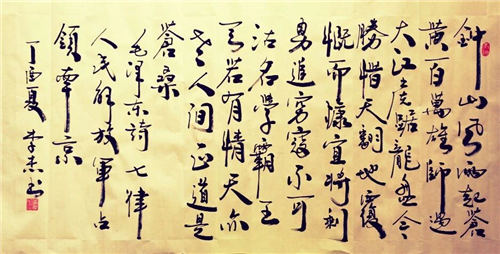 鈡山風雨起蒼
黄百萬雄師過
大江虎踞龍盘今
勝惜天翻地覆
慨而慷宜将剩
勇追穷寇不可
沽名學霸王
天若有情天亦
老人间正道是
蒼桑
毛泽东詩七律
人民解放軍占
領南京
丁酉夏 李杰书